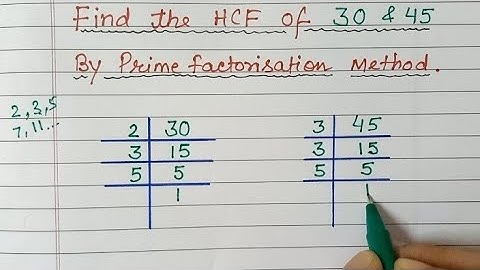 Find the HCF of 30 & 45
By Prime factorisation Method.
2, 3, 5
7, 11...
2 30
3 15
5 5
1
3 45
3 15
5 5
1